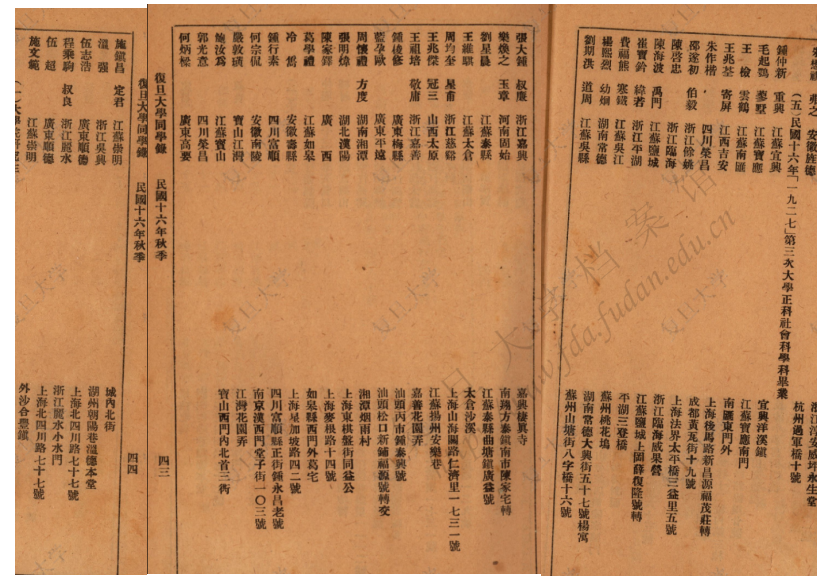 安徽旌德
杭州邊軍橋十號
(五)民國十六年「一九二七」第三次大學正科社會科學科畢業
鍾仲新 重興 江蘇宜興 宜興洋溪鎮
毛起鵷 蓼墅 江蘇寶應 江蘇寶應南門
王檢 雲鶴 江蘇南匯 南匯東門外
王兆荃 寄屏 江西吉安 上海後馬路新昌源福茂莊轉
朱作楷 四川榮昌 成都黃瓦街十九號
邵遂初 伯毅 浙江餘姚 上海法界太平橋三益里五號
陳啓忠 浙江臨海 浙江臨海
陳海波 禹門 江蘇鹽城 江蘇鹽城上岡薛復隆號轉
崔寶鈐 緯若 浙江平湖 平湖三登橋
費福熊 寒鐵 江蘇吳江 蘇州桃花塢
楊熙烈 幼烱 湖南常德 湖南常德大興街五十七號楊寓
劉期洪 道周 江蘇吳縣 蘇州山塘街八字橋十六號
張大鍾 叔龐 浙江嘉興 嘉興棲真寺
樂煥之 玉章 河南固始 南翔方泰鎮南市陳家宅轉
劉星晨 江蘇泰縣 江蘇泰縣曲塘鎮廣益號
王維騏 江蘇太倉 太倉沙溪
周均奎 星甫 浙江慈谿 上海山海關路仁濟里一七三一號
王兆傑 冠三 山西太原 江蘇揚州安樂巷
王祖培 敬庸 浙江嘉善 嘉善花園弄
鍾棱修 廣東梅縣 汕頭丙市鍾泰興號
藍孕歐 廣東平遠 汕頭松口新鋪福源號轉交
周懷禮 方度 湖南湘潭 湘潭烟雨村
張明煒 湖北漢陽 上海東棋盤街同益公
陳家鐸 廣西 上海麥根路十四號
葛學禮 江蘇如皋 如皋縣西門外葛宅
冷雋 安徽壽縣 上海星加坡路四二號
鍾行素 四川富順 四川富順縣正街鍾永昌老號
何宗侃 安徽南陵 南京漢西門堂子街一〇三號
嚴敦瑛 寶山江灣 江灣花園弄
鮑汝爲 江蘇寶山 寶山西門內北首三衖
郭光意 四川榮昌
何炳樑 廣東高要
復旦大學同學錄 民國十六年秋季 四三
復旦大學同學錄 民國十六年秋季 四四
施鎮昌 定君 江蘇崇明 城內北街
溫強 浙江吳興 湖州朝陽巷溫德本堂
伍志浩 廣東順德 上海北四川路七十七號
程乘駒 叔良 浙江麗水 浙江麗水小水門
伍超 廣東順德 上海北四川路七十七號
施文藐 江蘇崇明 外沙合豐鎮